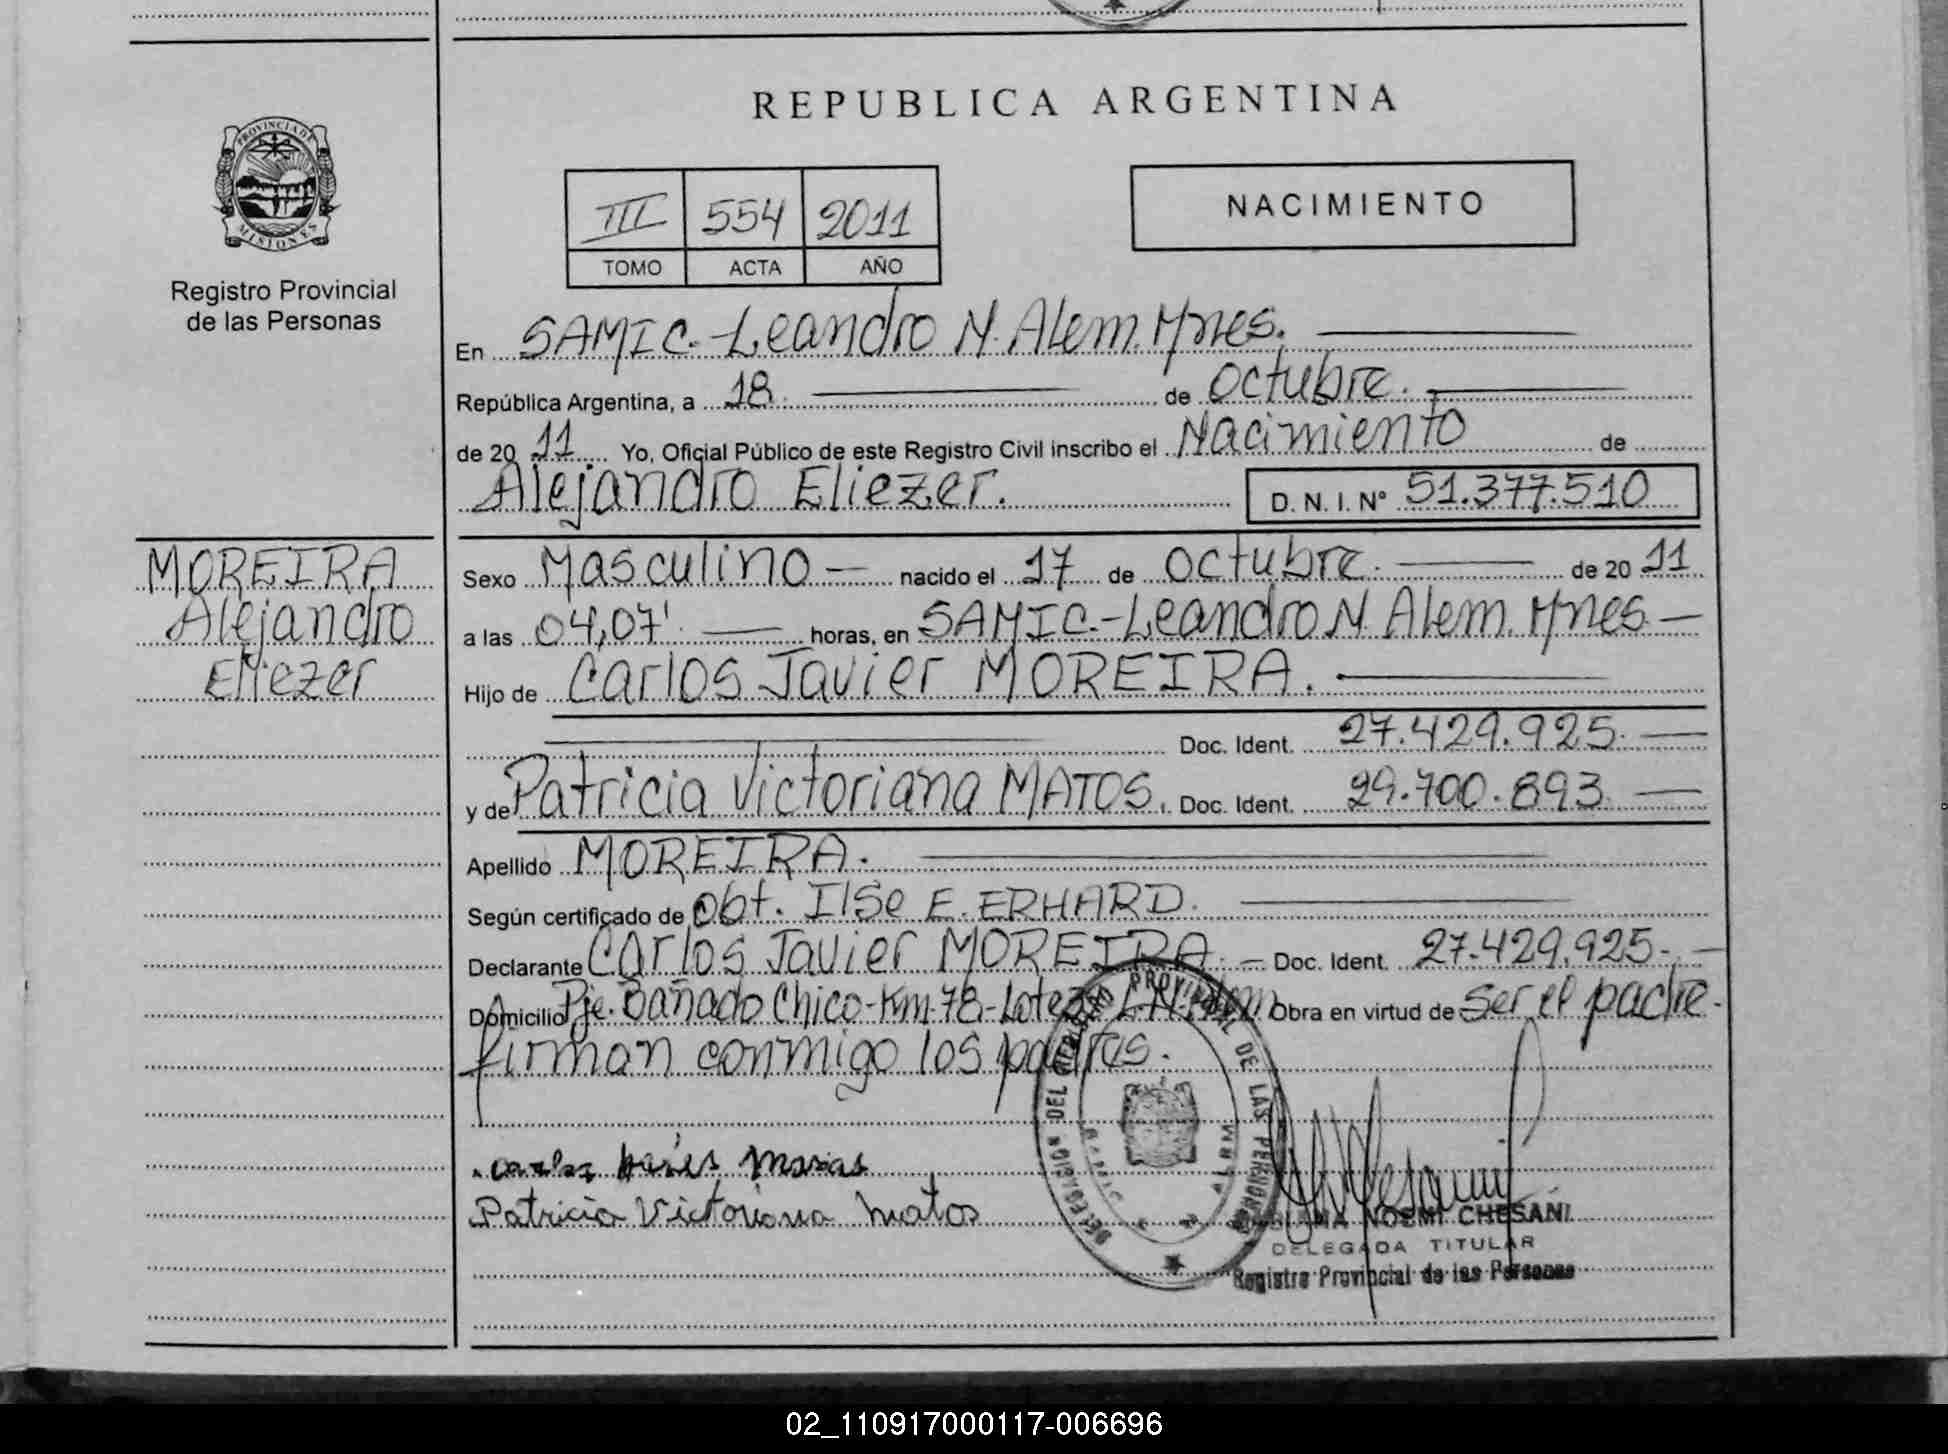 REPUBLICA ARGENTINA
PROVINCIA DE
MISIONES
Registro Provincial
de las Personas
III 554 2011
TOMO ACTA AÑO
NACIMIENTO
En SAMIC.-Leandro N. Alem. Mnes.
República Argentina, a 18. de octubre.
de 20 11. Yo, Oficial Público de este Registro Civil inscribo el Nacimiento de
Alejandro Eliezer. D. N. I. Nº 51.377.510
MOREIRA
Alejandro
Eliezer
Sexo Masculino nacido el 17 de octubre. de 20 11
a las 04,07' horas, en SAMIC.-Leandro N. Alem. Mnes
Hijo de Carlos Javier MOREIRA.
Doc. Ident. 27.429.925.
y de Patricia Victoriana MATOS. Doc. Ident. 29.700.893.
Apellido MOREIRA.
Según certificado de Obt. Ilse E. ERHARD.
Declarante Carlos Javier MOREIRA. Doc. Ident. 27.429.925.
Domicilio Pje. Bañado Chico-Km.78-Lote L.N. Alem Obra en virtud de ser el padre.
firman conmigo los padres.
Patricia Victoriana Matos
DELEGACION DEL REGISTRO PROVINCIAL DE LAS PERSONAS
SAMIC
ALEM
NOEMI CHESANI
DELEGADA TITULAR
Registro Provincial de las Personas
02_110917000117-006696